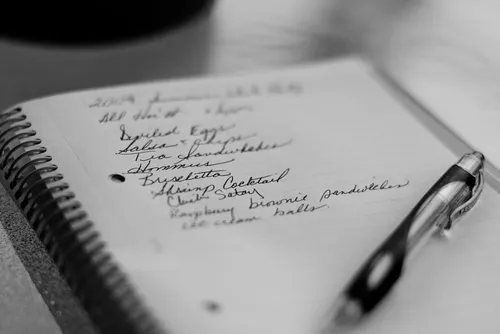 2009 Summer
All
Deviled Eggs
Salsa + Chips
Tea Sandwhiches
Hommus
Bruschetta
Shrimp Cocktail
Chick Satay
Raspberry brownie sandwiches
ice cream balls.